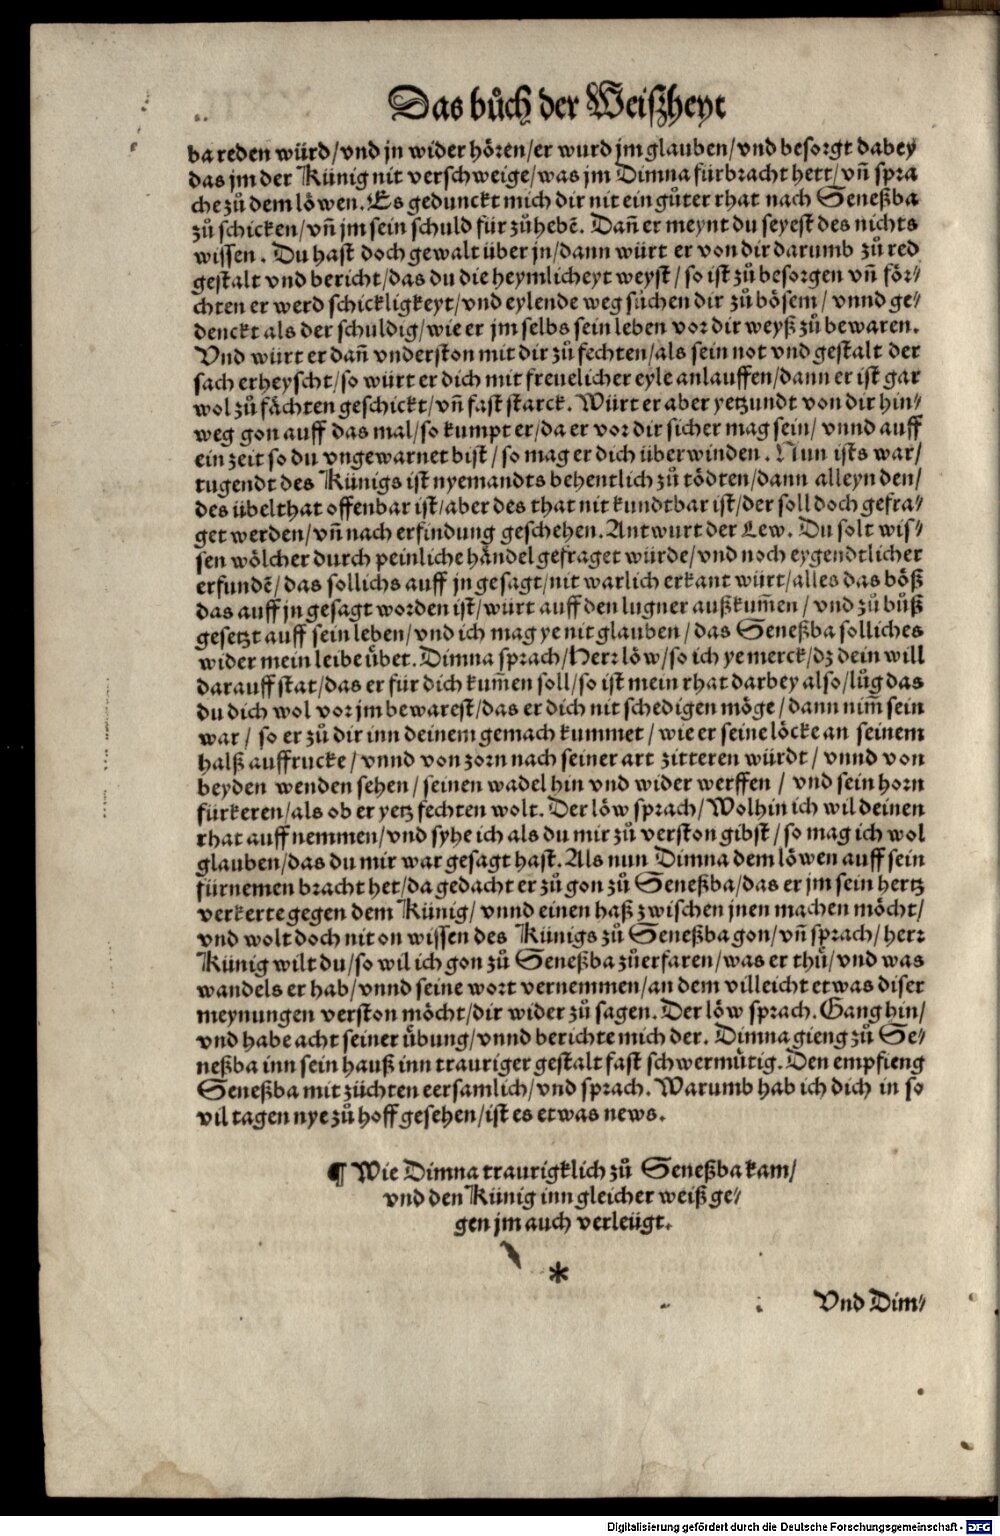 Das bůch der Weißheyt
ba reden würd/vnd jn wider hören/er wurd jm glauben/vnd besorgt dabey
das jm der Künig nit verschweige/was jm Dimna fürbracht hett/vñ spra
che zů dem löwen. Es gedunckt mich dir nit ein gůter rhat nach Seneßba
zů schicken/vñ jm sein schuld für zůhebẽ. Dañ er meynt du seyest des nichts
wissen. Du hast doch gewalt über jn/dann würt er von dir darumb zů red
gestalt vnd bericht/das du die heymlicheyt weyst/so ist zů besorgen vñ för⸗
chten er werd schickligkeyt/vnd eylende weg sůchen dir zů bösem/vnnd ge⸗
denckt als der schuldig/wie er jm selbs sein leben vor dir weyß zů bewaren.
Vnd würt er dañ vnderston mit dir zů fechten/als sein not vnd gestalt der
sach erheyscht/so würt er dich mit freuelicher eyle anlauffen/dann er ist gar
wol zů fächten geschickt/vñ fast starck. Würt er aber yetzundt von dir hin⸗
weg gon auff das mal/so kumpt er/da er vor dir sicher mag sein/vnnd auff
ein zeit so du vngewarnet bist/so mag er dich überwinden. Nun ists war/
tugendt des Künigs ist nyemandts behentlich zů tödten/dann alleyn den/
des übelthat offenbar ist/aber des that nit kundtbar ist/der soll doch gefra⸗
get werden/vñ nach erfindung geschehen. Antwurt der Lew. Du solt wis⸗
sen wölcher durch peinliche händel gefraget würde/vnd noch eygendtlicher
erfundẽ/das sollichs auff jn gesagt/nit warlich erkant würt/alles das böß
das auff jn gesagt worden ist/würt auff den lugner außkum̃en/vnd zů bůß
gesetzt auff sein leben/vnd ich mag ye nit glauben/das Seneßba solliches
wider mein leibe übet. Dimna sprach/Herr löw/so ich ye merck/dz dein will
darauff stat/das er für dich kum̃en soll/so ist mein rhat darbey also/lůg das
du dich wol vor jm bewarest/das er dich nit schedigen möge/dann nim̃ sein
war/so er zů dir inn deinem gemach kummet/wie er seine löcke an seinem
halß auffrucke/vnnd von zorn nach seiner art zitteren würdt/vnnd von
beyden wenden sehen/seinen wadel hin vnd wider werffen/vnd sein horn
fürkeren/als ob er yetz fechten wolt. Der löw sprach/Wolhin ich wil deinen
rhat auff nemmen/vnd syhe ich als du mir zů verston gibst/so mag ich wol
glauben/das du mir war gesagt hast. Als nun Dimna dem löwen auff sein
fürnemen bracht het/da gedacht er zů gon zů Seneßba/das er jm sein hertz
verkerte gegen dem Künig/vnnd einen haß zwischen jnen machen möcht/
vnd wolt doch nit on wissen des Künigs zů Seneßba gon/vñ sprach/herr
Künig wilt du/so wil ich gon zů Seneßba zůerfaren/was er thů/vnd was
wandels er hab/vnnd seine wort vernemmen/an dem villeicht etwas diser
meynungen verston möcht/dir wider zů sagen. Der löw sprach. Gang hin/
vnd habe acht seiner übung/vnnd berichte mich der. Dimna gieng zů Se⸗
neßba inn sein hauß inn trauriger gestalt fast schwermůtig. Den empfieng
Seneßba mit züchten eersamlich/vnd sprach. Warumb hab ich dich in so
vil tagen nye zů hoff gesehen/ist es etwas news.
¶ Wie Dimna traurigklich zů Seneßba kam/
vnd den Künig inn gleicher weiß ge⸗
gen jm auch verleügt.
*
Vnd Dim⸗
Digitalisierung gefördert durch die Deutsche Forschungsgemeinschaft - DFG